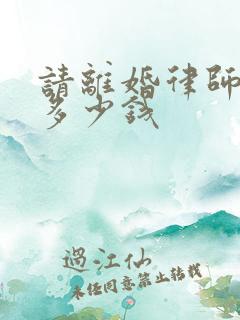 請離婚律師
多少錢
過江仙
未經同意禁止轉載